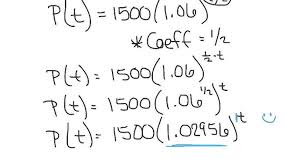 P(t) = 1500(1.06)^(t/2)
*Coeff = 1/2
P(t) = 1500(1.06)^(½·t)
P(t) = 1500(1.06^(1/2))^t
P(t) = 1500(1.02956)^(1t)